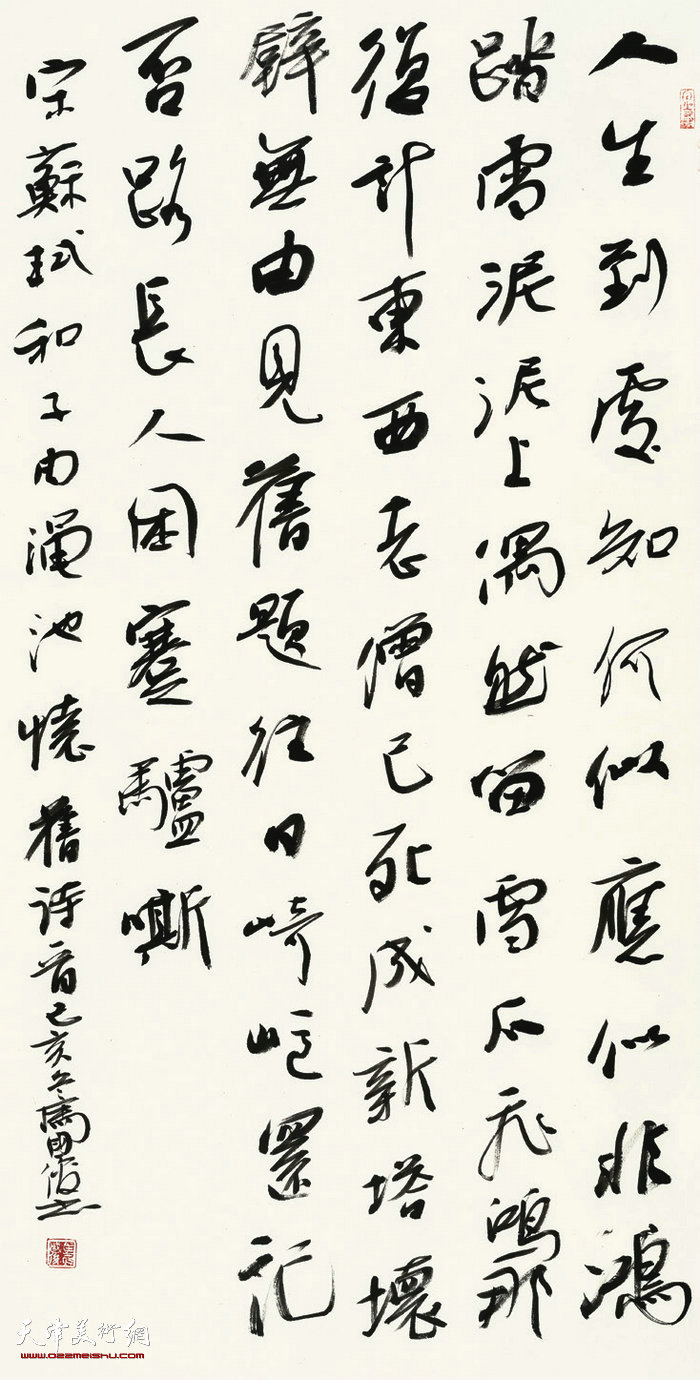 人生到處知何似應似非鴻
踏雪泥泥上偶然留雪爪飛鴻那
復計東西老僧已死成新塔壞
壁無由見舊題往日崎嶇還記
否路長人困蹇驢嘶
宋蘇軾和子由澠池憶舊詩首己亥冬
天津美術網
www.022meishu.com